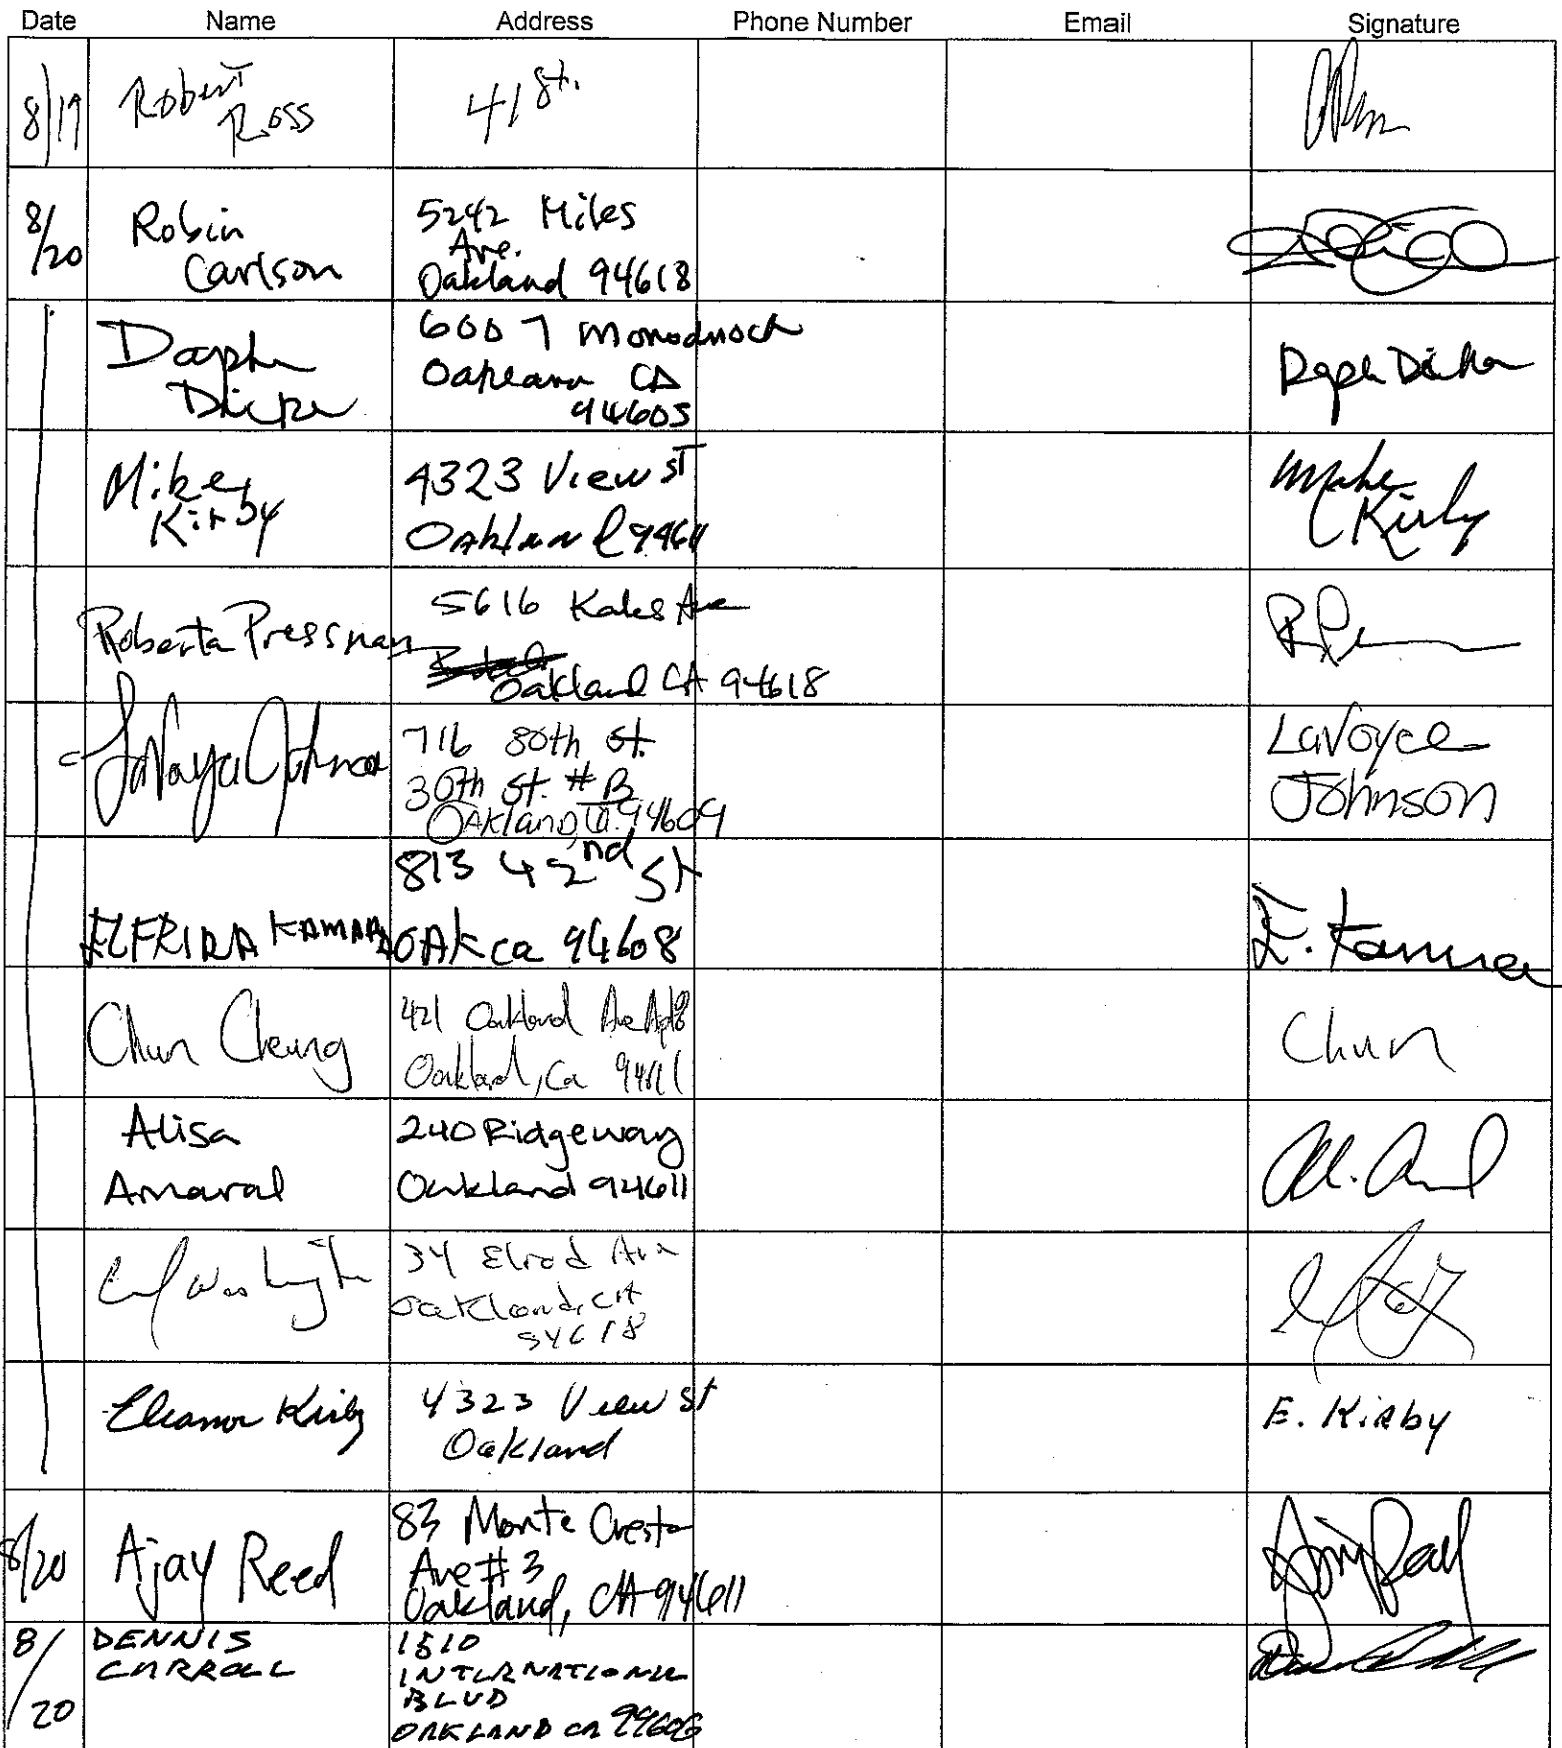 Date Name Address Phone Number Email Signature
8/19 Robert Ross 41 St.
8/20 Robin Carlson 5242 Miles Ave. Oakland 94618
6007 Monodnock CA 94605
Mike Kirby 4323 View St Oakland 94611 Mike Kirby
Roberta Pressman 5616 Kales Ave Oakland CA 94618
LaVoyce Johnson 716 30th St. # B Oakland, Ca. 94609 LaVoyce Johnson
ELFRIDA KAMARA 813 42nd St OAK ca 94608 E. Kamara
Chun Cheung 421 Oakland Ave Apt 8 Oakland, Ca 94611 Chun
Alisa Amaral 240 Ridgeway Oakland 94611
Washington 34 Elrod Ave Oakland, CA 94618
Eleanor Kirby 4323 View St Oakland E. Kirby
8/20 Ajay Reed 83 Monte Cresta Ave #3 Oakland, CA 94611
8/20 DENNIS CARROLL INTERNATIONAL BLVD OAKLAND CA 94606